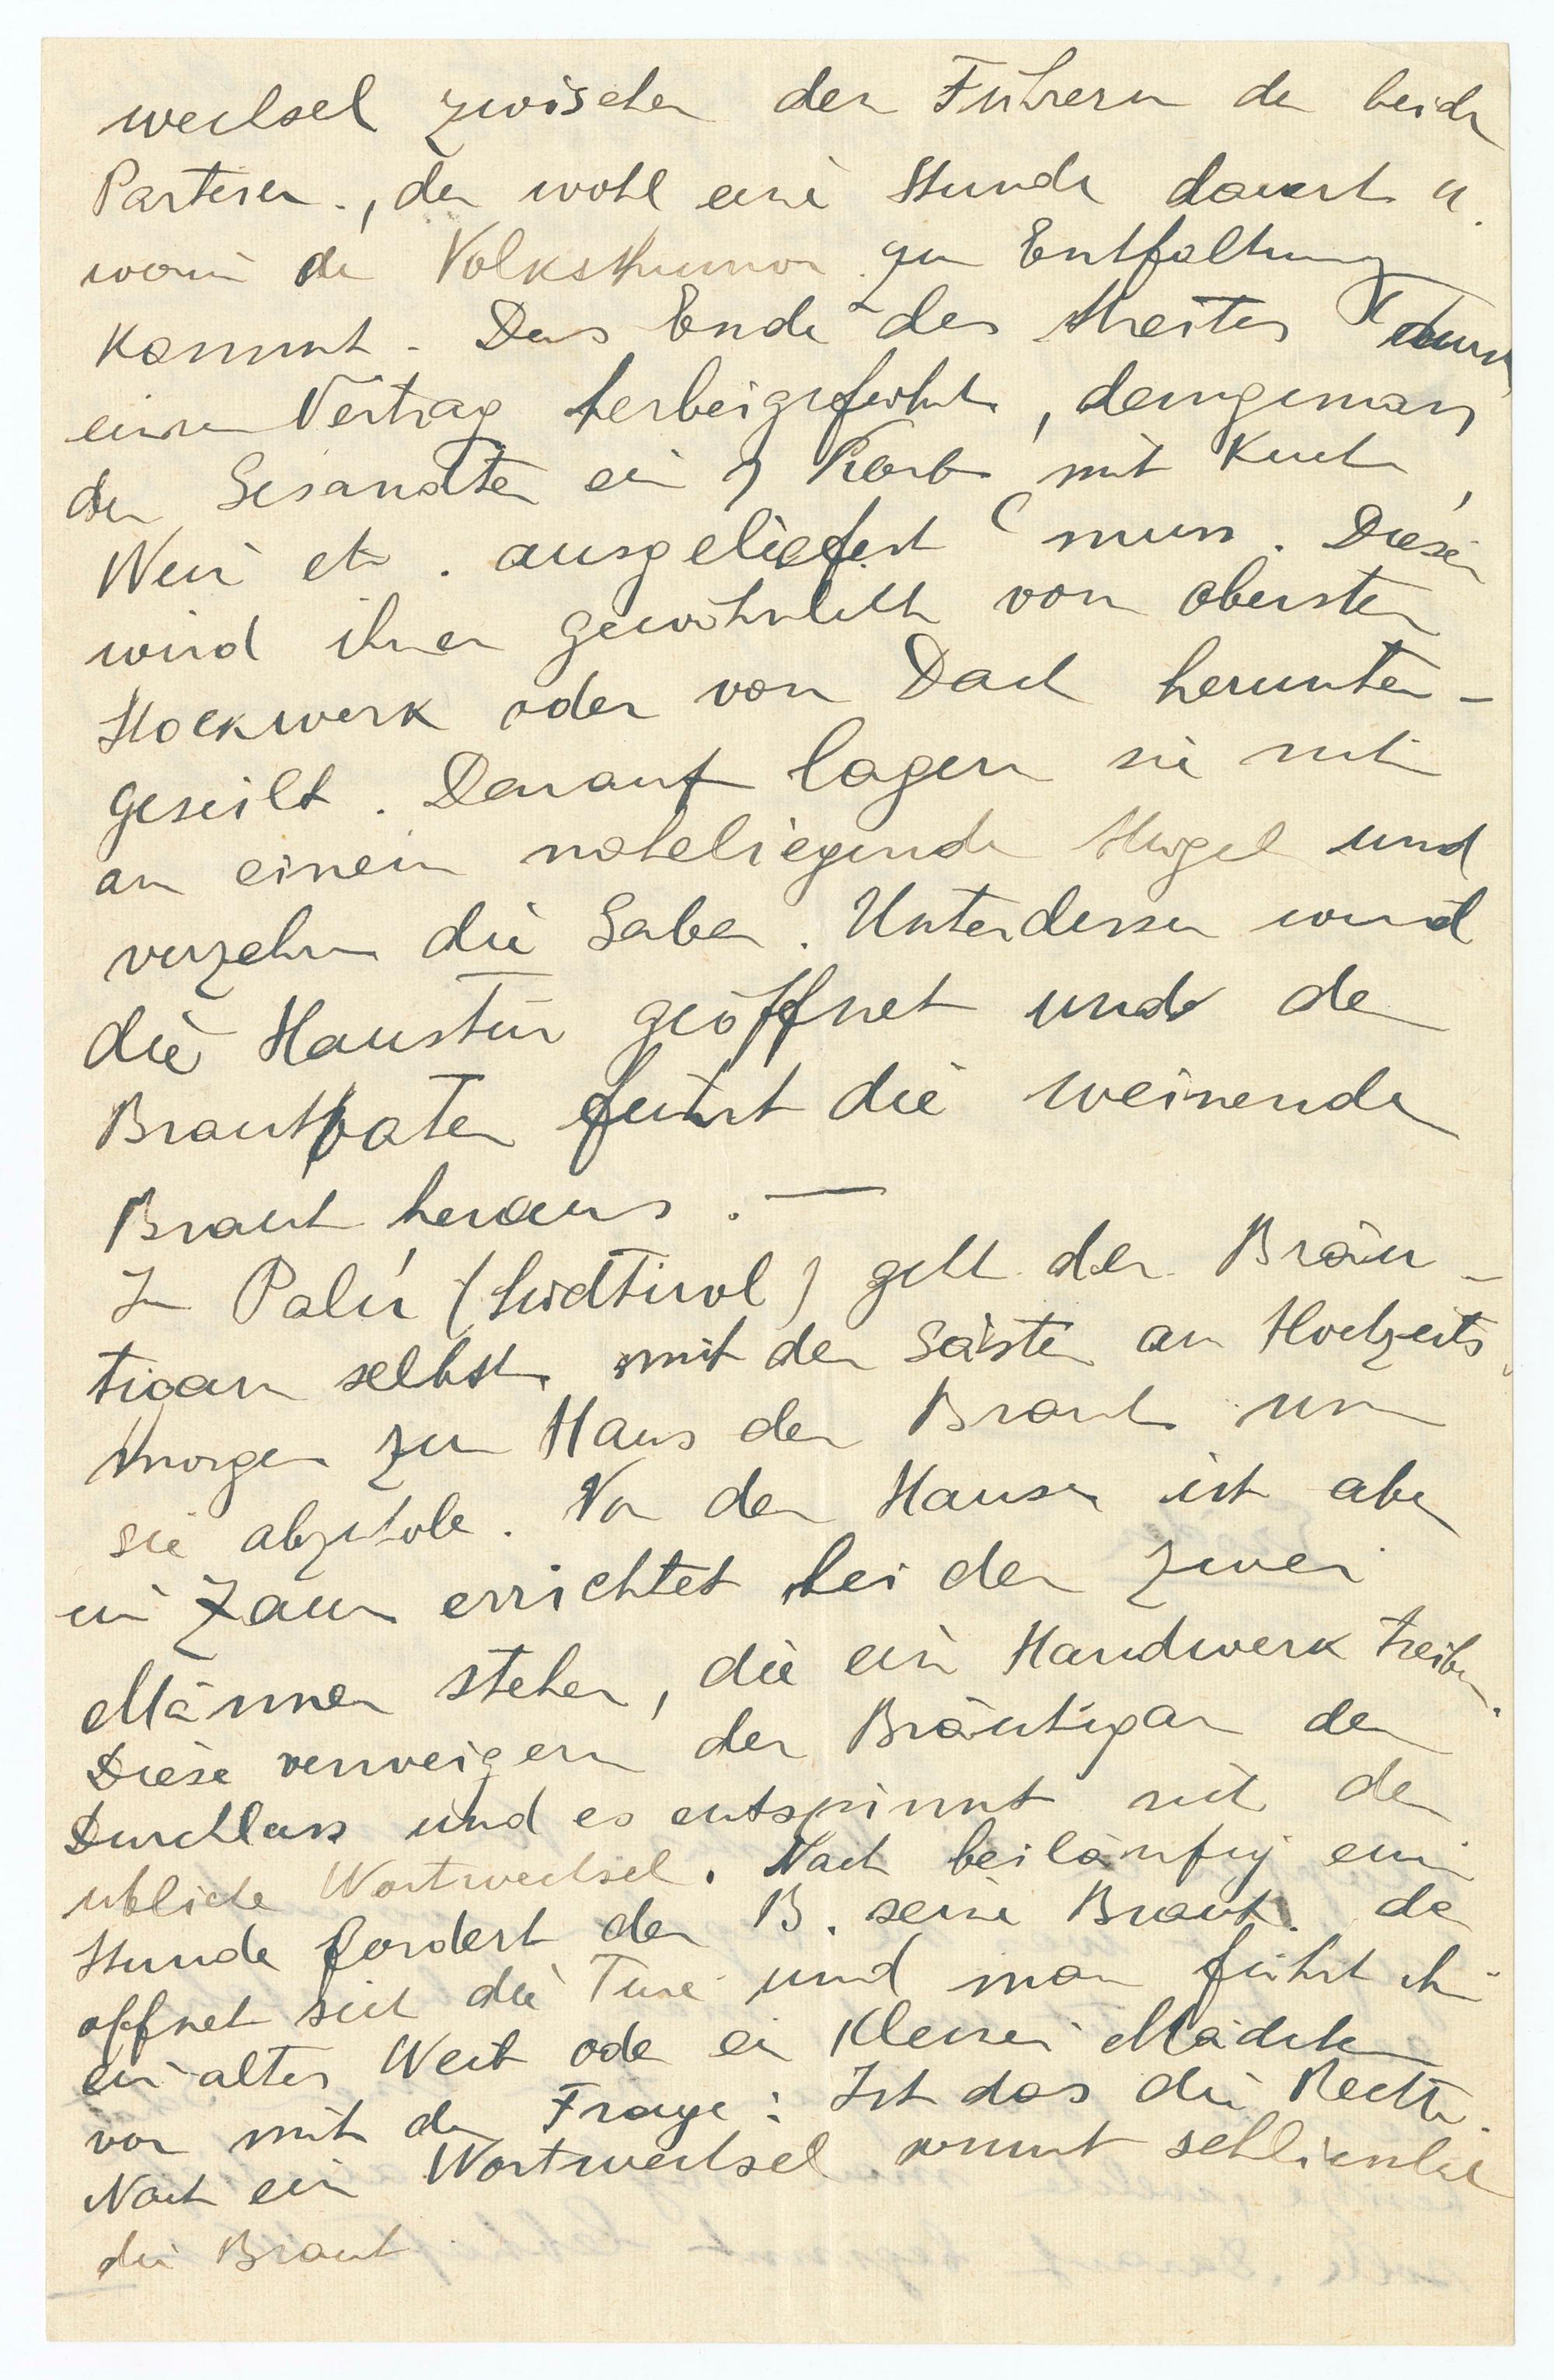 wechsel zwischen den Führern der beiden
Parteien., der wohl eine Stunde dauert u.
worin der Volkshumor zur Entfaltung
kommt. Das Ende des Streites durch
einen Vertrag herbeigeführt, demgemäss
den Gesandten ein Korb mit Kuchen,
Wein etc. ausgeliefert muss. Dieser
wird ihnen gewöhnlich vom obersten
Stockwerk oder vom Dach herunter-
geseilt. Darauf lagern sie sich
an einem naheliegenden Hügel und
verzehren die Gaben. Unterdessen wird
die Haustür geöffnet und der
Brautvater führt die weinende
Braut heraus. —
In Palú (Südtirol) geht der Bräu-
tigam selbst mit den Gästen am Hochzeits
morgen zum Haus der Braut um
sie abzuholen. Vor dem Hause ist aber
ein Zaun errichtet bei dem zwei
Männer stehen, die ein Handwerk treiben.
Diese verweigern dem Bräutigam den
Durchlass und es entspinnt sich der
übliche Wortwechsel. Nach beiläufig einer
Stunde fordert der B. seine Braut. da
öffnet sich die Türe und man führt ihm
ein altes Weib oder ein kleines Mädchen
vor mit der Frage: Ist das die Rechte.
Nach ein Wortwechsel kommt schliesslich
die Braut